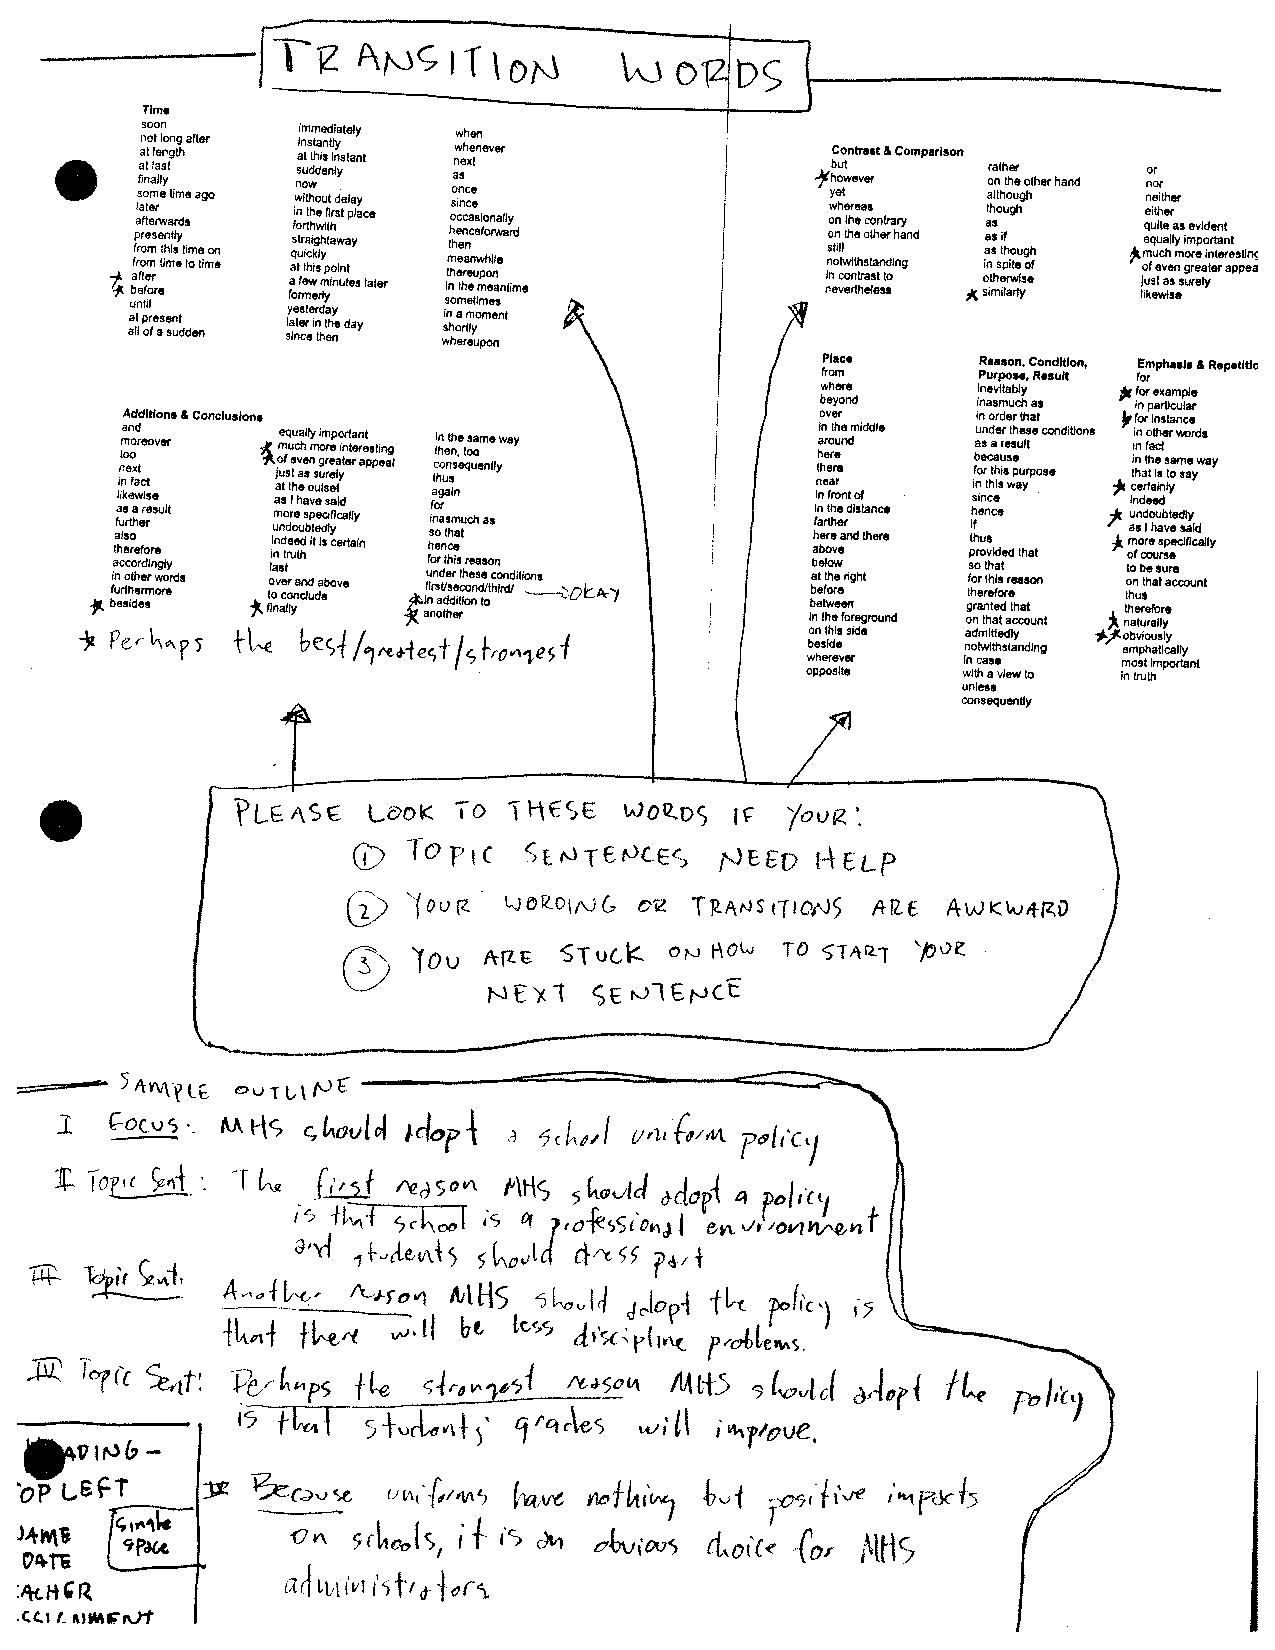 TRANSITION WORDS
Time
soon
not long after
at length
at last
finally
some time ago
later
afterwards
presently
from this time on
from time to time
after
before
until
at present
all of a sudden
immediately
instantly
at this instant
suddenly
now
without delay
in the first place
forthwith
straightaway
quickly
at this point
a few minutes later
formerly
yesterday
later in the day
since then
when
whenever
next
as
once
since
occasionally
henceforward
then
meanwhile
thereupon
in the meantime
sometimes
in a moment
shortly
whereupon
Contrast & Comparison
but
however
yet
whereas
on the contrary
on the other hand
still
notwithstanding
in contrast to
nevertheless
rather
on the other hand
although
though
as
as if
as though
in spite of
otherwise
similarly
or
nor
neither
either
quite as evident
equally important
much more interesting
of even greater appea
just as surely
likewise
Additions & Conclusions
and
moreover
too
next
in fact
likewise
as a result
further
also
therefore
accordingly
in other words
furthermore
besides
equally important
much more interesting
of even greater appeal
just as surely
at the outset
as I have said
more specifically
undoubtedly
indeed it is certain
in truth
last
over and above
to conclude
finally
in the same way
then, too
consequently
thus
again
for
inasmuch as
so that
hence
for this reason
under these conditions
first/second/third/ OKAY
in addition to
another
* Perhaps the best/greatest/strongest
Place
from
where
beyond
over
in the middle
around
here
there
near
in front of
in the distance
farther
here and there
above
below
at the right
before
between
in the foreground
on this side
beside
wherever
opposite
Reason, Condition,
Purpose, Result
inevitably
inasmuch as
in order that
under these conditions
as a result
because
for this purpose
in this way
since
hence
if
thus
provided that
so that
for this reason
therefore
granted that
on that account
admittedly
notwithstanding
in case
with a view to
unless
consequently
Emphasis & Repetitic
for
for example
in particular
for instance
in other words
in fact
in the same way
that is to say
certainly
indeed
undoubtedly
as I have said
more specifically
of course
to be sure
on that account
thus
therefore
naturally
obviously
emphatically
most important
in truth
PLEASE LOOK TO THESE WORDS IF YOUR:
① TOPIC SENTENCES NEED HELP
② YOUR WORDING OR TRANSITIONS ARE AWKWARD
③ YOU ARE STUCK ON HOW TO START YOUR
NEXT SENTENCE
SAMPLE OUTLINE
I Focus: MHS should adopt a school uniform policy
II Topic Sent: The first reason MHS should adopt a policy
is that school is a professional environment
and students should dress part
III Topic Sent: Another reason MHS should adopt the policy is
that there will be less discipline problems.
IV Topic Sent: Perhaps the strongest reason MHS should adopt the policy
is that students' grades will improve.
V Because uniforms have nothing but positive impacts
on schools, it is an obvious choice for MHS
administrators
ADING -
OP LEFT
AME
DATE
ACHER
SSIGNMENT
Single
space